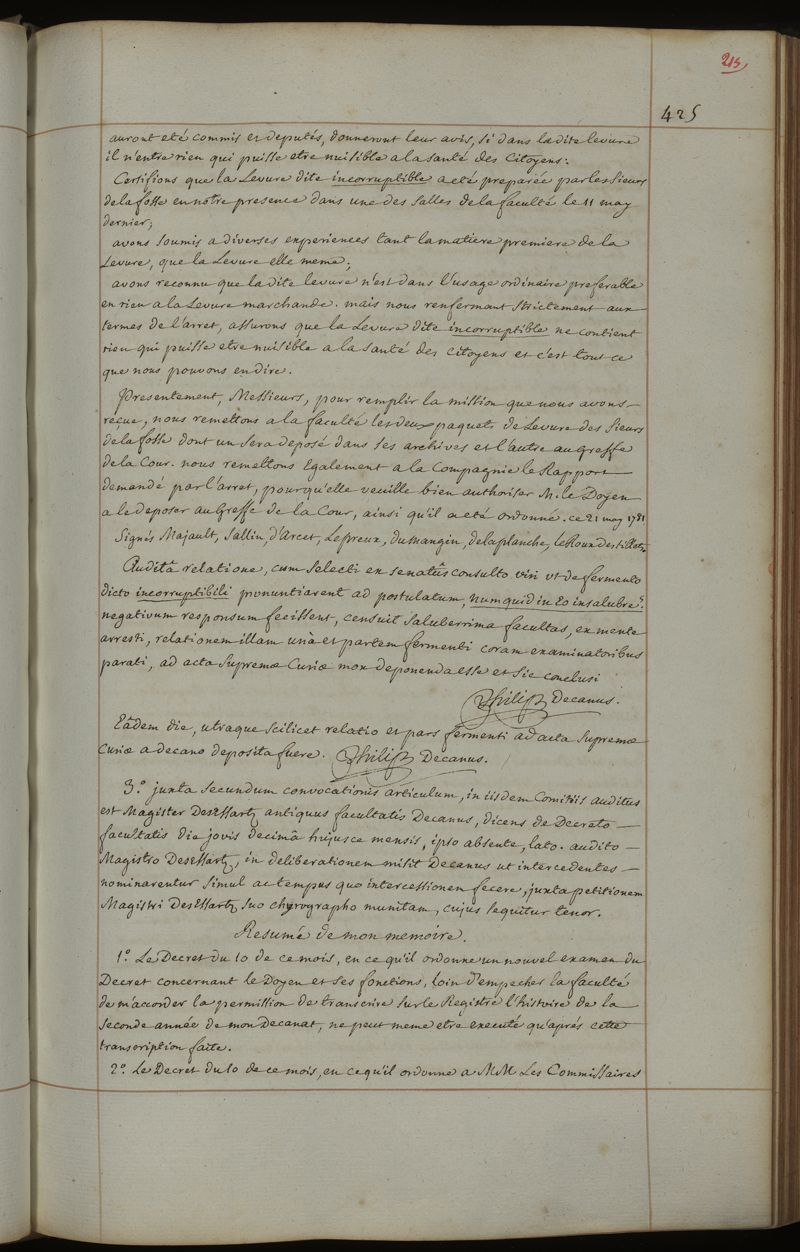 215
425
auront eté commis et deputés, donneront leur avis, si dans ladite levure
il n'entre rien qui puisse etre nuisible a la santé des Citoyens:
Certifions que la Levure dite incorruptible a eté preparée par les Sieurs
de la fosse en notre presence dans une des Salles de la faculté le 11 may
dernier;
avons soumis a diverses experiences tant la matiere premiere de la
Levure, que la Levure elle meme;
avons reconnu que la dite levure n'est dans l'usage ordinaire preferable
en rien a la Levure marchande. mais nous renfermant strictement aux
termes de l'arret, assurons que la Levure dite incorruptible ne contient
rien qui puisse etre nuisible a la santé des Citoyens et c'est tout ce
que nous pouvons en dire.
Presentement, Messieurs, pour remplir la mission que nous avons
reçue, nous remettons a la faculté les deux paquets de Levure des Sieurs
de la fosse dont un sera deposé dans ses archives et l'autre au Greffe
de la Cour. nous remettons Egalement a la Compagnie le Rapport
demandé par l'arret, pour qu'elle veuille bien authoriser M. le Doyen
a le deposer au Greffe de la Cour, ainsi qu'il a eté ordonné. ce 21 may 1781
Signés Majault, Sallin, d'Arcet, Lepreux, dumangin, delaplanche, le Roux des tillets
Auditâ relatione, cum selecti ex senatûs consulto viri ut de fermento
dicto incorruptibili pronuntiarent ad postulatum, numquid in Eo insalubre?
negativum responsum fecissent, censuit saluberrima facultas, ex mente
arresti, relationem illam unà et partem fermenti coram examinatoribus
parati, ad acta Supremæ Curiæ mox deponenda esse et sic conclusi
Philip Decanus.
Eâdem die, utraque scilicet relatio et pars fermenti ad acta Supremæ
Curiæ a decano deposita fuere. Philip Decanus.
3.º juxta secundum convocationis articulum, in iisdem Comitiis auditus
est Magister DesEssartz antiquus facultatis Decanus, dicens de Decreto
facultatis die jovis decimâ hujusce mensis, ipso absente, lato. audito
Magistro DesEssartz, in deliberationem misit Decanus ut intercedentes
nominarentur simul ac tempus quo intercessionem fecere, juxta petitionem
Magistri DesEssartz suo chyrographo munitam, cujus sequitur tenor.
Resumé de mon memoire.
1.º Le Decret du 10 de ce mois, en ce qu'il ordonne un nouvel examen du
Decret concernant le Doyen et ses fonctions, loin d'empecher la faculté
de m'accorder la permission de transcrire sur le Registre l'histoire de la
seconde année de mon Decanat, ne peut meme etre executé qu'aprés cette
transcription faite.
2.º Le Decret du 10 de ce mois, en ce qu'il ordonne a MM Les Commissaires